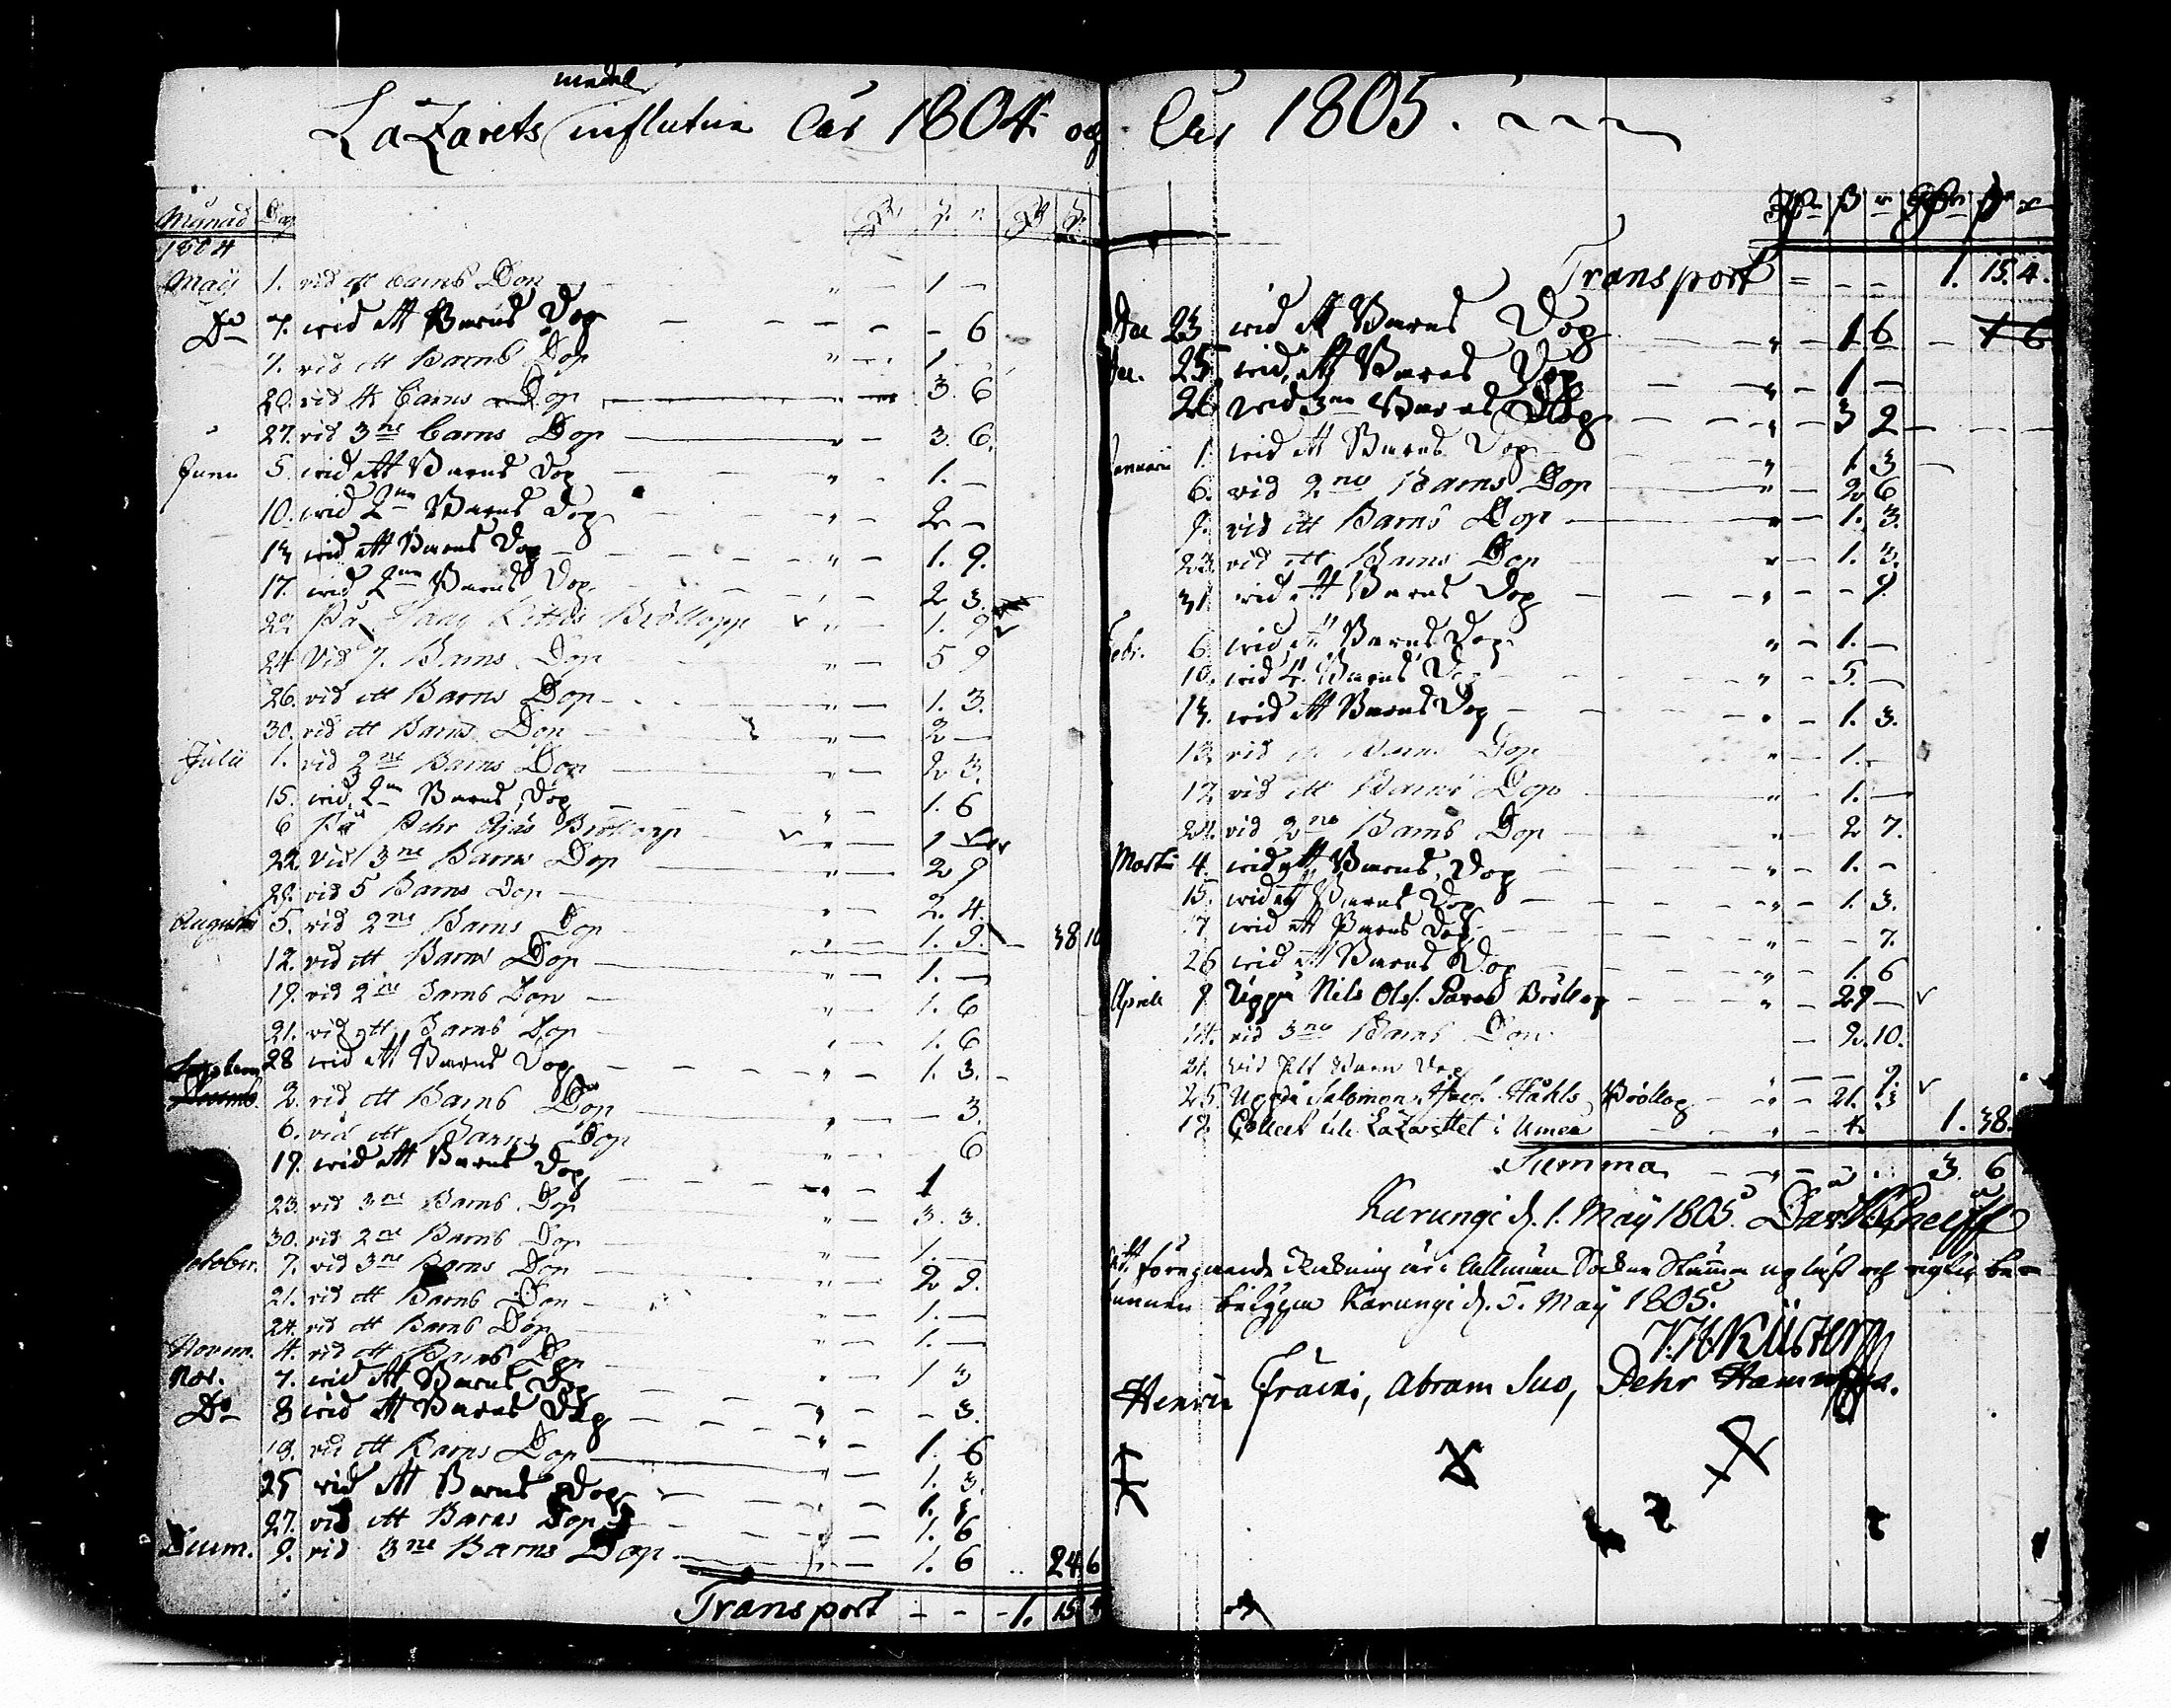 medel
LaZarets influtna Åhr 1804. og Åhr 1805.
Månad Dag
1804
Maij 1. vid ett barns Dop " — 1 —
Do 7. wid ett Barns Dop — — 6
7. vid ett Barns Dop " — 1 —
20. vid 4 barns Dop " — 3. 6
27. vid 3ne barns Dop " — 3. 6.
Junii 5. wid ett Barns Dop " — 1. —
10. wid 2ne Barns Dop " — 2 —
13 wid ett Barns Dop " — 1. 9.
17. wid 2ne Barns Dop " — 2 3.
22 På Bröllopp v " — 1. 9 v
24 Vid 7. Barns Dop " — 5 9
26. vid ett Barns Dop " — 1. 3.
30. vid ett Barns Dop " — 2 —
Julii 1. vid 2ne Barns Dop " — 2 3.
15. wid 2ne Barns Dop " — 1. 6
6 På Pehr Bröllopp v " — 1 —
22. Vid 3ne Barns Dop " — 2 9
29. vid 5 Barns Dop " — 2. 4.
Augusti 5. vid 2ne Barns Dop " — 1. 9. — 38 10
12. vid ett Barns Dop " — 1. —
19. vid 2ne Barns Dop " — 1. 6
21. vid ett Barns Dop " — 1. 6
28 wid ett Barns Dop " — 1. 3. —
Septem 2. vid ett Barns Dop " — — 3.
6. vid ett Barns Dop " — 6
19. wid ett Barns Dop " — 1
23. vid 3ne Barns Dop " — 3. 3.
30. vid 2ne Barns Dop " — 1. —
October. 7. vid 3ne Barns Dop " — 2 9.
21. vid ett Barns Dop " — 1. —
24. vid ett Barns Dop " — 1. —
Novem. 4. vid ett Barns Dop " — 1 3
Nov. 7. wid ett Barns Dop — — 3.
Do 8 wid ett Barns Dop " — 1. 6
19. vid ett Barns Dop " — 1. 3.
25 wid ett Barns Dop — 1. 3
27. vid ett Barns Dop " — 1. 6
Decem. 9. vid 3ne Barns Dop " — 1. 6 .. 24 6
Transport — — 1. 15 4
Transport = — — 1. 15. 4.
Dec 23 wid ett Barns Dop " — 1 6 — 1 6
Dec. 25 wid ett Barns Dop " — 1 —
26 wid 3ne Barns Dop " — 3 2
Januarii 1. wid ett Barns Dop " — 1 3
6. vid 2ne Barns Dop " — 2 6
9. vid ett Barns Dop " — 1. 3.
23. vid ett Barns Dop " — 1. 3.
31 wid ett Barns Dop " — — 9.
Febr. 6. wid ett Barns Dop " — 1. —
10. wid 4. Barns Dop " — 5. —
13. wid ett Barns Dop " — 1. 3.
13. vid ett Barns Dop " — 1. —
17. vid ett Barns Dop " — 1. —
24. vid 2ne Barns Dop " — 2 7.
Martii 4. wid ett Barns Dop " — 1. —
15. wid ett Barns Dop " — 1. 3.
17 wid ett Barns Dop " — — 7.
26 wid ett Barns Dop " — 1. 6
Aprill 9. Uppå Nils Olss. Bröllop " — 29 — v
14. vid 3ne Barns Dop — 2. 10.
21. wid Ett Barns Dop " — — 9.
25. Uppå Salomon Ståhls Bröllop " — 21. 3 v
12. Collect til LaZarettet i Umeå " — 4. 1. 38.
Summa — " — 3. 6
Karungi d. 1. Maij 1805.
Att föregående Räkning är i Allmän Sockne Stämma upläst och rigtig be-
funnen betygar Karungi d. 5. Maij 1805.
Henric Fräcki, Abram Suo, Pehr